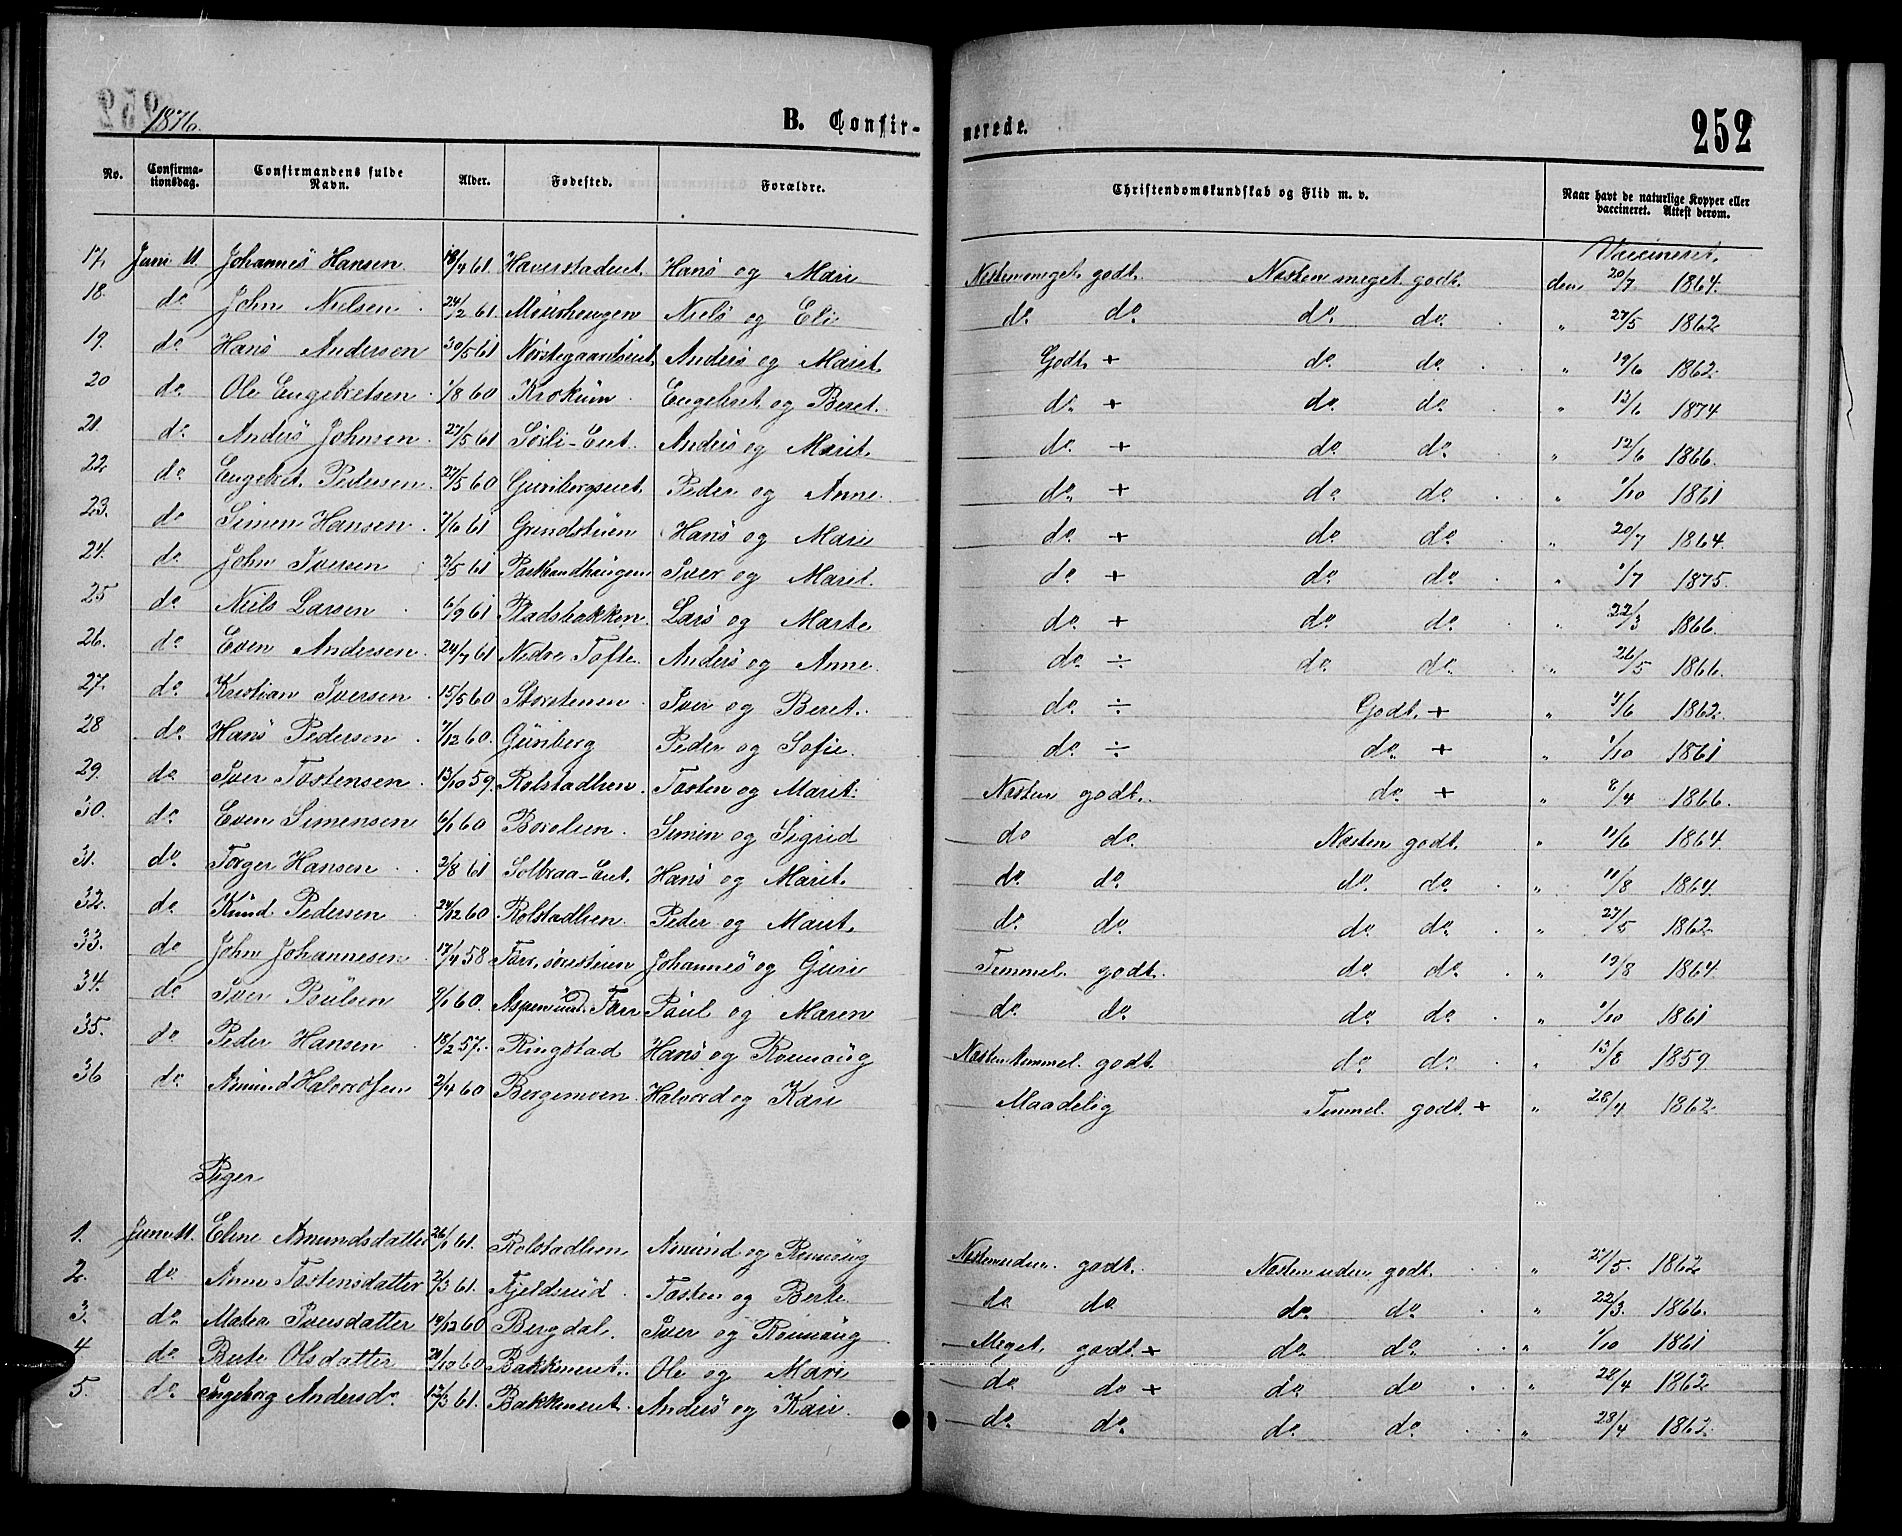 1876.
B. Confir-
merede.
252
No.
Confirma-
tionsdag.
Confirmandens fulde
Navn.
Alder.
Fødested.
Forældre.
Christendomskundskab og Flid m. v.
Naar havt de naturlige Kopper eller
vaccineret. Attest derom.
Vaccineret.
17. Juni 11. Johannes Hansen 18/4 61. Haverstadeiet Hans og Mari Næsten meget godt. Næsten meget godt. den 20/7 1864.
18. do John Nielsen 24/2 61. Niels og Eli do. do. do. do. " 27/5 1862
19. do Hans Andersen 30/5 61 Anders og Marit Godt + do do " 19/6 1862.
20 do Ole Engebretsen 1/8 60 Krokum Engebret og Beret. do. + do do " 13/6 1874
21. do Anders Johnsen 27/5 61 Sørli-Eiet. Anders og Marit. do + do do " 12/6 1866.
22 do. Engebret Pedersen 27/5 60 Gunbergseiet Peder og Anne. do. + do do " 1/10 1861
23. do Simen Hansen 7/6 61 Grindstuen Hans og Mari do. + do do. " 20/7 1864.
24. do. John Iversen 2/5 61 Iver og Marit. do + do do. " 1/7 1875.
25 do. Niels Larsen 6/9 61 Pladsbakken Lars og Marte do. + do do. " 22/3 1866.
26. do. Even Andersen 24/7 61 Nedre Tofte Anders og Anne do. ÷ do. do. " 26/5 1866.
27. do. Kristian Iversen 15/5 60 Storstenen Iver og Beret. do ÷ Godt. + " 4/6 1862.
28 do. Hans Pedersen 7/12 60. Gunberg Peder og Sofie. do. ÷ do. + " 1/10 1861
29. do Iver Tostensen 13/10 59. Rolstadlien Tosten og Marit. Næsten godt. do + " 8/4 1866.
30. do. Even Simensen 6/1 60 Borelien Simen og Sigrid do do. Næsten godt. " 11/6 1864.
31. do. Torger Hansen 2/8 61 Solbraa-Eiet. Hans og Marit. do. do. do. do. " 11/8 1864.
32. do. Knud Pedersen 24/12 60 Rolstadlien Peder og Marit. do. do. do. do. " 27/5 1862
33. do John Johannesen 17/4 58 Johannes og Guri Temmel. godt. do. do. " 19/8 1864.
34. do Iver Paulsen 9/1 60. Paul og Maren do. do. do. do. " 1/10 1861
35. do. Peder Hansen 18/2 57. Ringstad Hans og Rønnaug Næsten temmel. godt. do. do. " 13/8 1859.
36 do. Amund Halvorsen 2/4 60 Bergemoen Halvord og Kari Maadelig Temmel. godt. + " 28/4 1862.
Piger
1. Juni 11. Eline Amundsdatter 26/1 61. Rolstadlien Amund og Rønnaug Næsten uden. godt. Næsten uden godt. " 27/5. 1862
2. do. Anne Tostensdatter 2/3 61. Fjeldrud Tosten og Berte do do do do. " 22/3. 1866.
3. do. Matea Iversdatter 19/12 60 Bergdal Iver og Rønnaug Meget godt + do do. " 1/10 1861
4 do Berte Olsdatter 21/10 60 Bakkeneiet. Ole og Mari do do + do do " 28/4 1862
5. do Ingeborg Andersd. 12/3 61. Bakkeneiet Anders og Kari. do. do. do. do. " 28/4 1862.